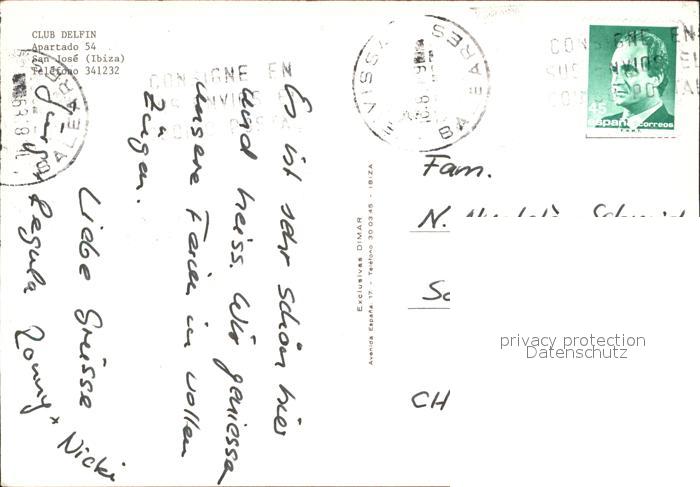 CLUB DELFIN
Apartado 54
San José (Ibiza)
Teléfono 341232
CONSIGNE EN
SUS ENVIOS EL
CODIGO POSTAL
EIVISSA
BALEARES
CONSIGNE EN
SUS ENVIOS EL
45
españa correos
BALEARES
Es ist sehr schön hier
und heiss. Wir geniessa
unsere Ferien in vollen
Zügen.
Liebe Grüsse
Jürg
Regula
Romy + Nicki
Exclusivas DIMAR
Avenida España, 17 - Teléfono 30 03 45 - IBIZA
Fam.
N.
CH
privacy protection
Datenschutz